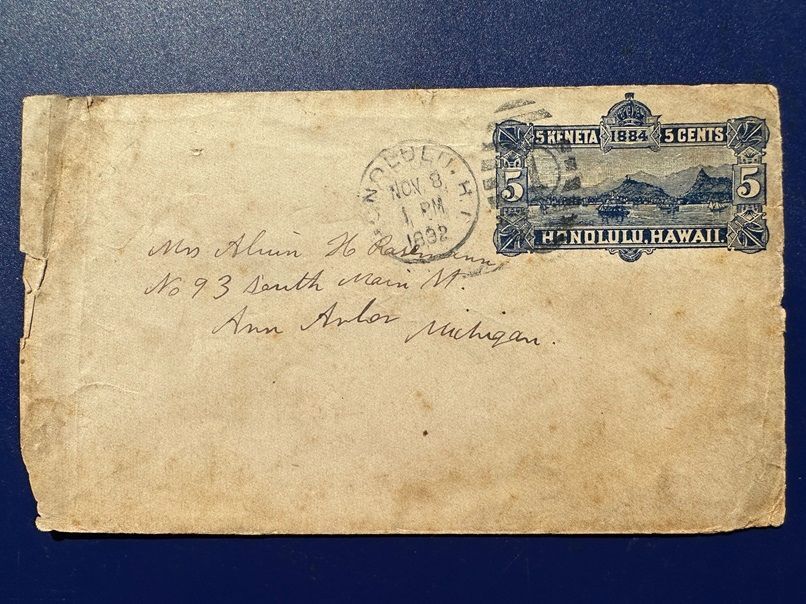 5 KENETA 1884 5 CENTS
5 5
HONOLULU, HAWAII.
HONOLULU. H. I.
NOV. 8.
1 PM
1892
Mrs H
No 93 South Main St.
Ann Arbor Michigan.